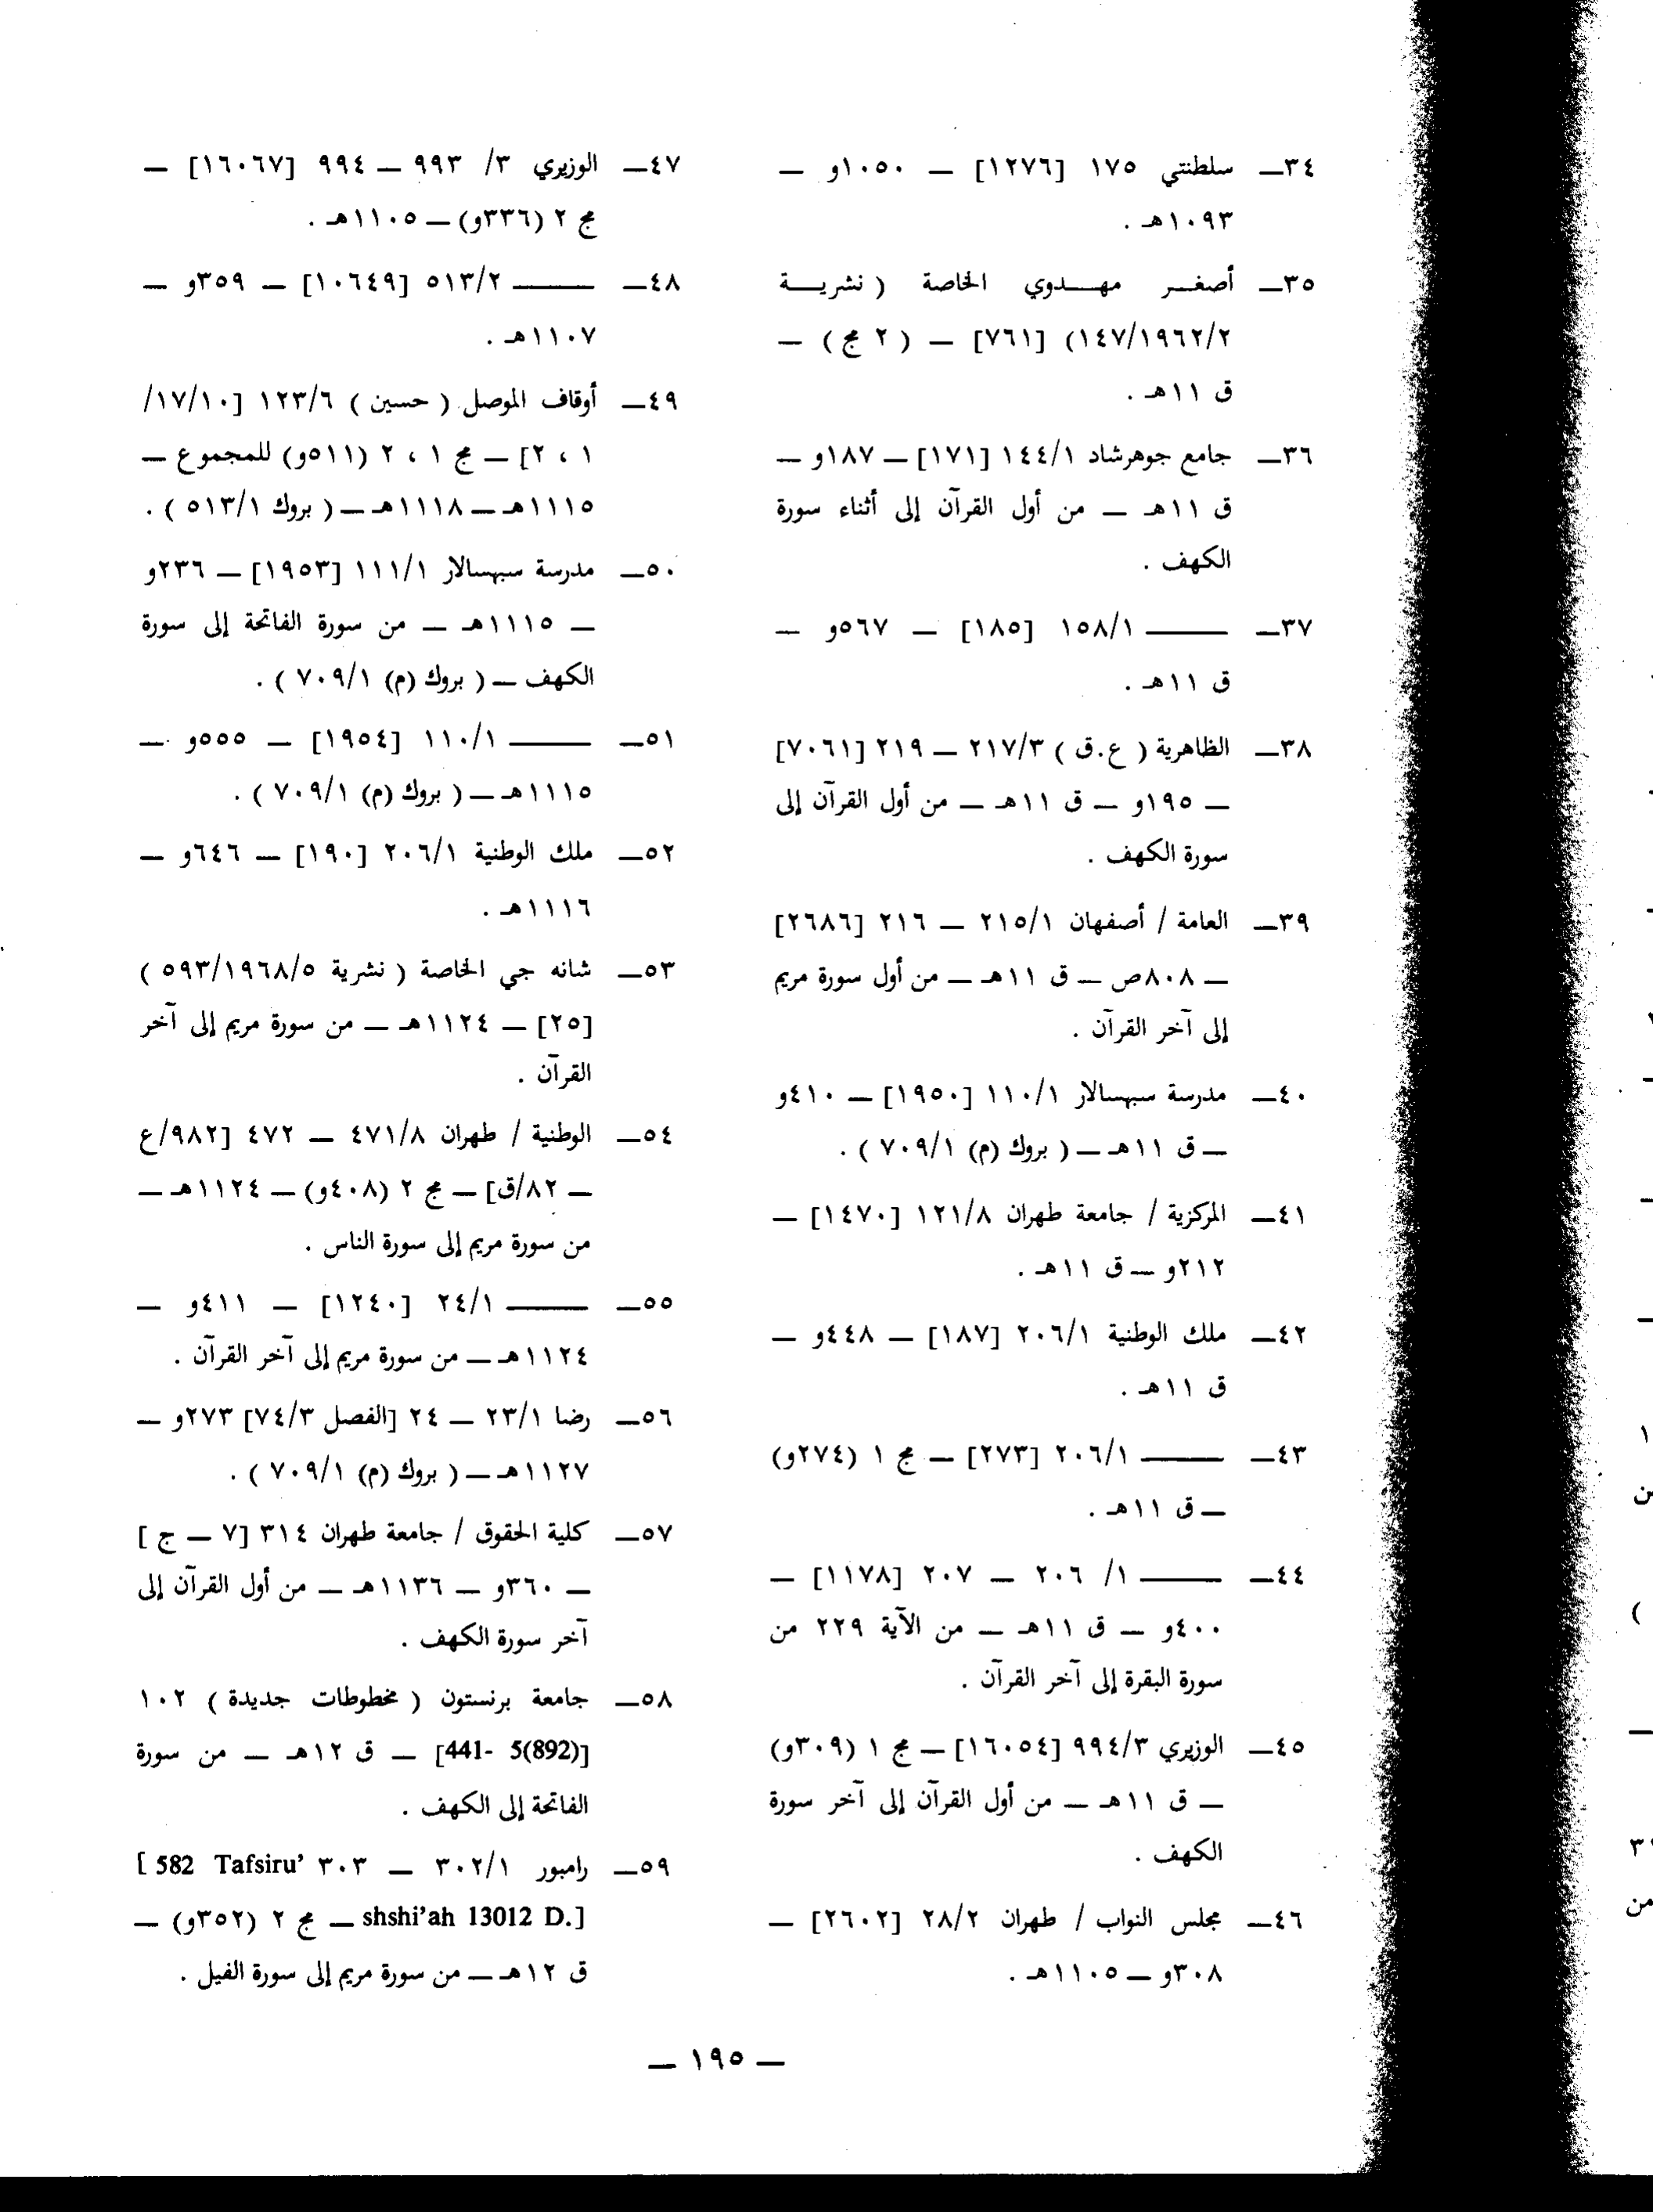 ٣٤ــ سلطنتي ١٧٥ [١٢٧٦] ــ ١٠٥٠و ــ
١٠٩٣هـ .
٣٥ــ أصغـر مهـدوي الخاصة ( نشريـة
١٤٧/١٩٦٢/٢) [٧٦١] ــ ( ٢ مج ) ــ
ق ١١هـ .
٣٦ــ جامع جوهرشاد ١٤٤/١ [١٧١] ــ ١٨٧و ــ
ق ١١هـ ــ من أول القرآن إلى أثناء سورة
الكهف .
٣٧ــ ــــــ ١٥٨/١ [١٨٥] ــ ٥٦٧و ــ
ق ١١هـ .
٣٨ــ الظاهرية ( ع.ق ) ٢١٧/٣ ــ ٢١٩ [٧٠٦١]
ــ ١٩٥و ــ ق ١١هـ ــ من أول القرآن إلى
سورة الكهف .
٣٩ــ العامة / أصفهان ٢١٥/١ ــ ٢١٦ [٢٦٨٦]
ــ ٨٠٨ص ــ ق ١١هـ ــ من أول سورة مريم
إلى آخر القرآن .
٤٠ــ مدرسة سبهسالار ١١٠/١ [١٩٥٠] ــ ٤١٠و
ــ ق ١١هـ ــ ( بروك (م) ٧٠٩/١ ) .
٤١ــ المركزية / جامعة طهران ١٢١/٨ [١٤٧٠] ــ
٢١٢و ــ ق ١١هـ .
٤٢ــ ملك الوطنية ٢٠٦/١ [١٨٧] ــ ٤٤٨و ــ
ق ١١هـ .
٤٣ــ ــــــ ٢٠٦/١ [٢٧٣] ــ مج ١ (٢٧٤و)
ــ ق ١١هـ .
٤٤ــ ــــــ ١/ ٢٠٦ ــ ٢٠٧ [١١٧٨] ــ
٤٠٠و ــ ق ١١هـ ــ من الآية ٢٢٩ من
سورة البقرة إلى آخر القرآن .
٤٥ــ الوزيري ٩٩٤/٣ [١٦٠٥٤] ــ مج ١ (٣٠٩و)
ــ ق ١١هـ ــ من أول القرآن إلى آخر سورة
الكهف .
٤٦ــ مجلس النواب / طهران ٢٨/٢ [٢٦٠٢] ــ
٣٠٨و ــ ١١٠٥هـ .
٤٧ــ الوزيري ٣/ ٩٩٣ ــ ٩٩٤ [١٦٠٦٧] ــ
مج ٢ (٣٣٦و) ــ ١١٠٥هـ .
٤٨ــ ــــــ ٥١٣/٢ [١٠٦٤٩] ــ ٣٥٩و ــ
١١٠٧هـ .
٤٩ــ أوقاف الموصل ( حسين ) ١٢٣/٦ [١٧/١٠/
١ ، ٢] ــ مج ١ ، ٢ (٥١١و) للمجموع ــ
١١١٥هـ ــ ١١١٨هـ ــ ( بروك ٥١٣/١ ) .
٥٠ــ مدرسة سبهسالار ١١١/١ [١٩٥٣] ــ ٢٣٦و
ــ ١١١٥هـ ــ من سورة الفاتحة إلى سورة
الكهف ــ ( بروك (م) ٧٠٩/١ ) .
٥١ــ ــــــ ١١٠/١ [١٩٥٤] ــ ٥٥٥و ــ
١١١٥هـ ــ ( بروك (م) ٧٠٩/١ ) .
٥٢ــ ملك الوطنية ٢٠٦/١ [١٩٠] ــ ٦٤٦و ــ
١١١٦هـ .
٥٣ــ شانه جي الخاصة ( نشرية ٥٩٣/١٩٦٨/٥ )
[٢٥] ــ ١١٢٤هـ ــ من سورة مريم إلى آخر
القرآن .
٥٤ــ الوطنية / طهران ٤٧١/٨ ــ ٤٧٢ [٩٨٢/ع
ــ ٨٢/ق] ــ مج ٢ (٤٠٨و) ــ ١١٢٤هـ ــ
من سورة مريم إلى سورة الناس .
٥٥ــ ــــــ ٢٤/١ [١٢٤٠] ــ ٤١١و ــ
١١٢٤هـ ــ من سورة مريم إلى آخر القرآن .
٥٦ــ رضا ٢٣/١ ــ ٢٤ [الفصل ٧٤/٣] ٢٧٣و ــ
١١٢٧هـ ــ ( بروك (م) ٧٠٩/١ ) .
٥٧ــ كلية الحقوق / جامعة طهران ٣١٤ [٧ ــ ج ]
ــ ٣٦٠و ــ ١١٣٦هـ ــ من أول القرآن إلى
آخر سورة الكهف .
٥٨ــ جامعة برنستون ( مخطوطات جديدة ) ١٠٢
[441- 5(892)] ــ ق ١٢هـ ــ من سورة
الفاتحة إلى الكهف .
٥٩ــ رامبور ٣٠٢/١ ــ ٣٠٣ [ 582 Tafsiru'
shshi'ah 13012 D.] ــ مج ٢ (٣٥٢و) ــ
ق ١٢هـ ــ من سورة مريم إلى سورة الفيل .
ــ ١٩٥ ــ